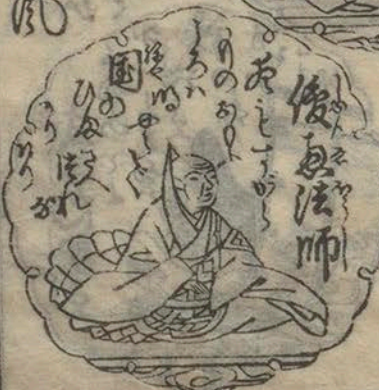 俊恵法師
夜もすがら
ものおもふ
ころハ
明やらで
閨の
ひまさへつれな
かりけり
風